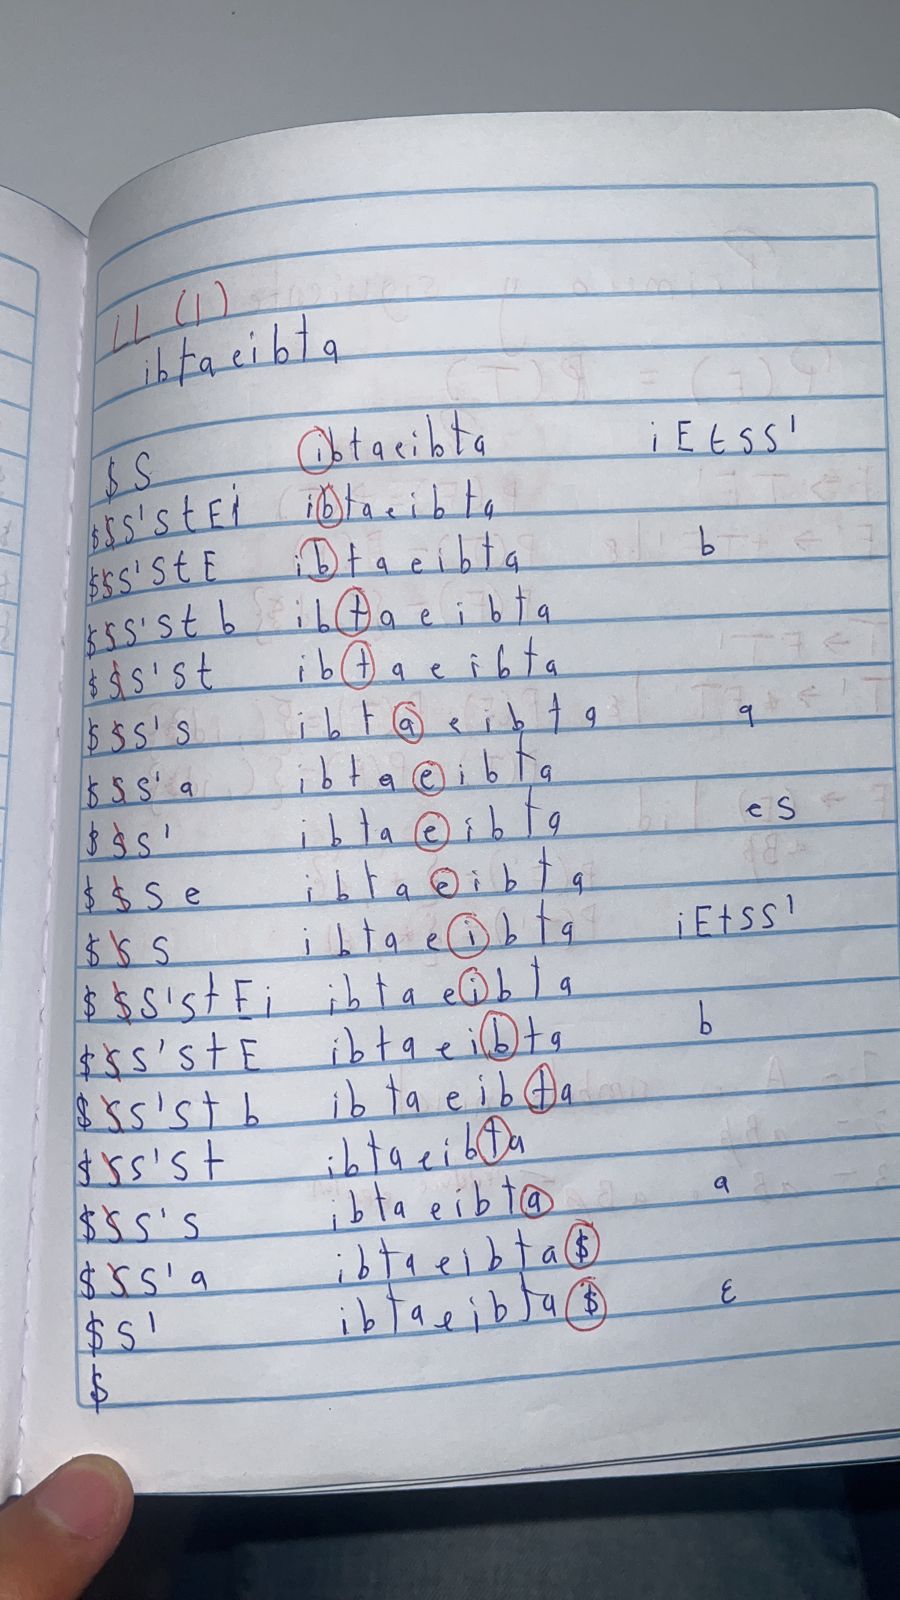 LL (1)
ibtaeibta
$ S ibtaeibta iEtSS'
$$S'StEi ibtaeibta
$$S'StE ibtaeibta b
$$S'Stb ibtaeibta
$$S'St ibtaeibta
$$S'S ibtaeibta a
$$S'a ibtaeibta
$$S' ibtaeibta eS
$$Se ibtaeibta
$$S ibtaeibta iEtSS'
$$S'StEi ibtaeibta
$$S'StE ibtaeibta b
$$S'Stb ibtaeibta
$$S'St ibtaeibta
$$S'S ibtaeibta a
$$S'a ibtaeibta$
$S' ibtaeibta$ ε
$